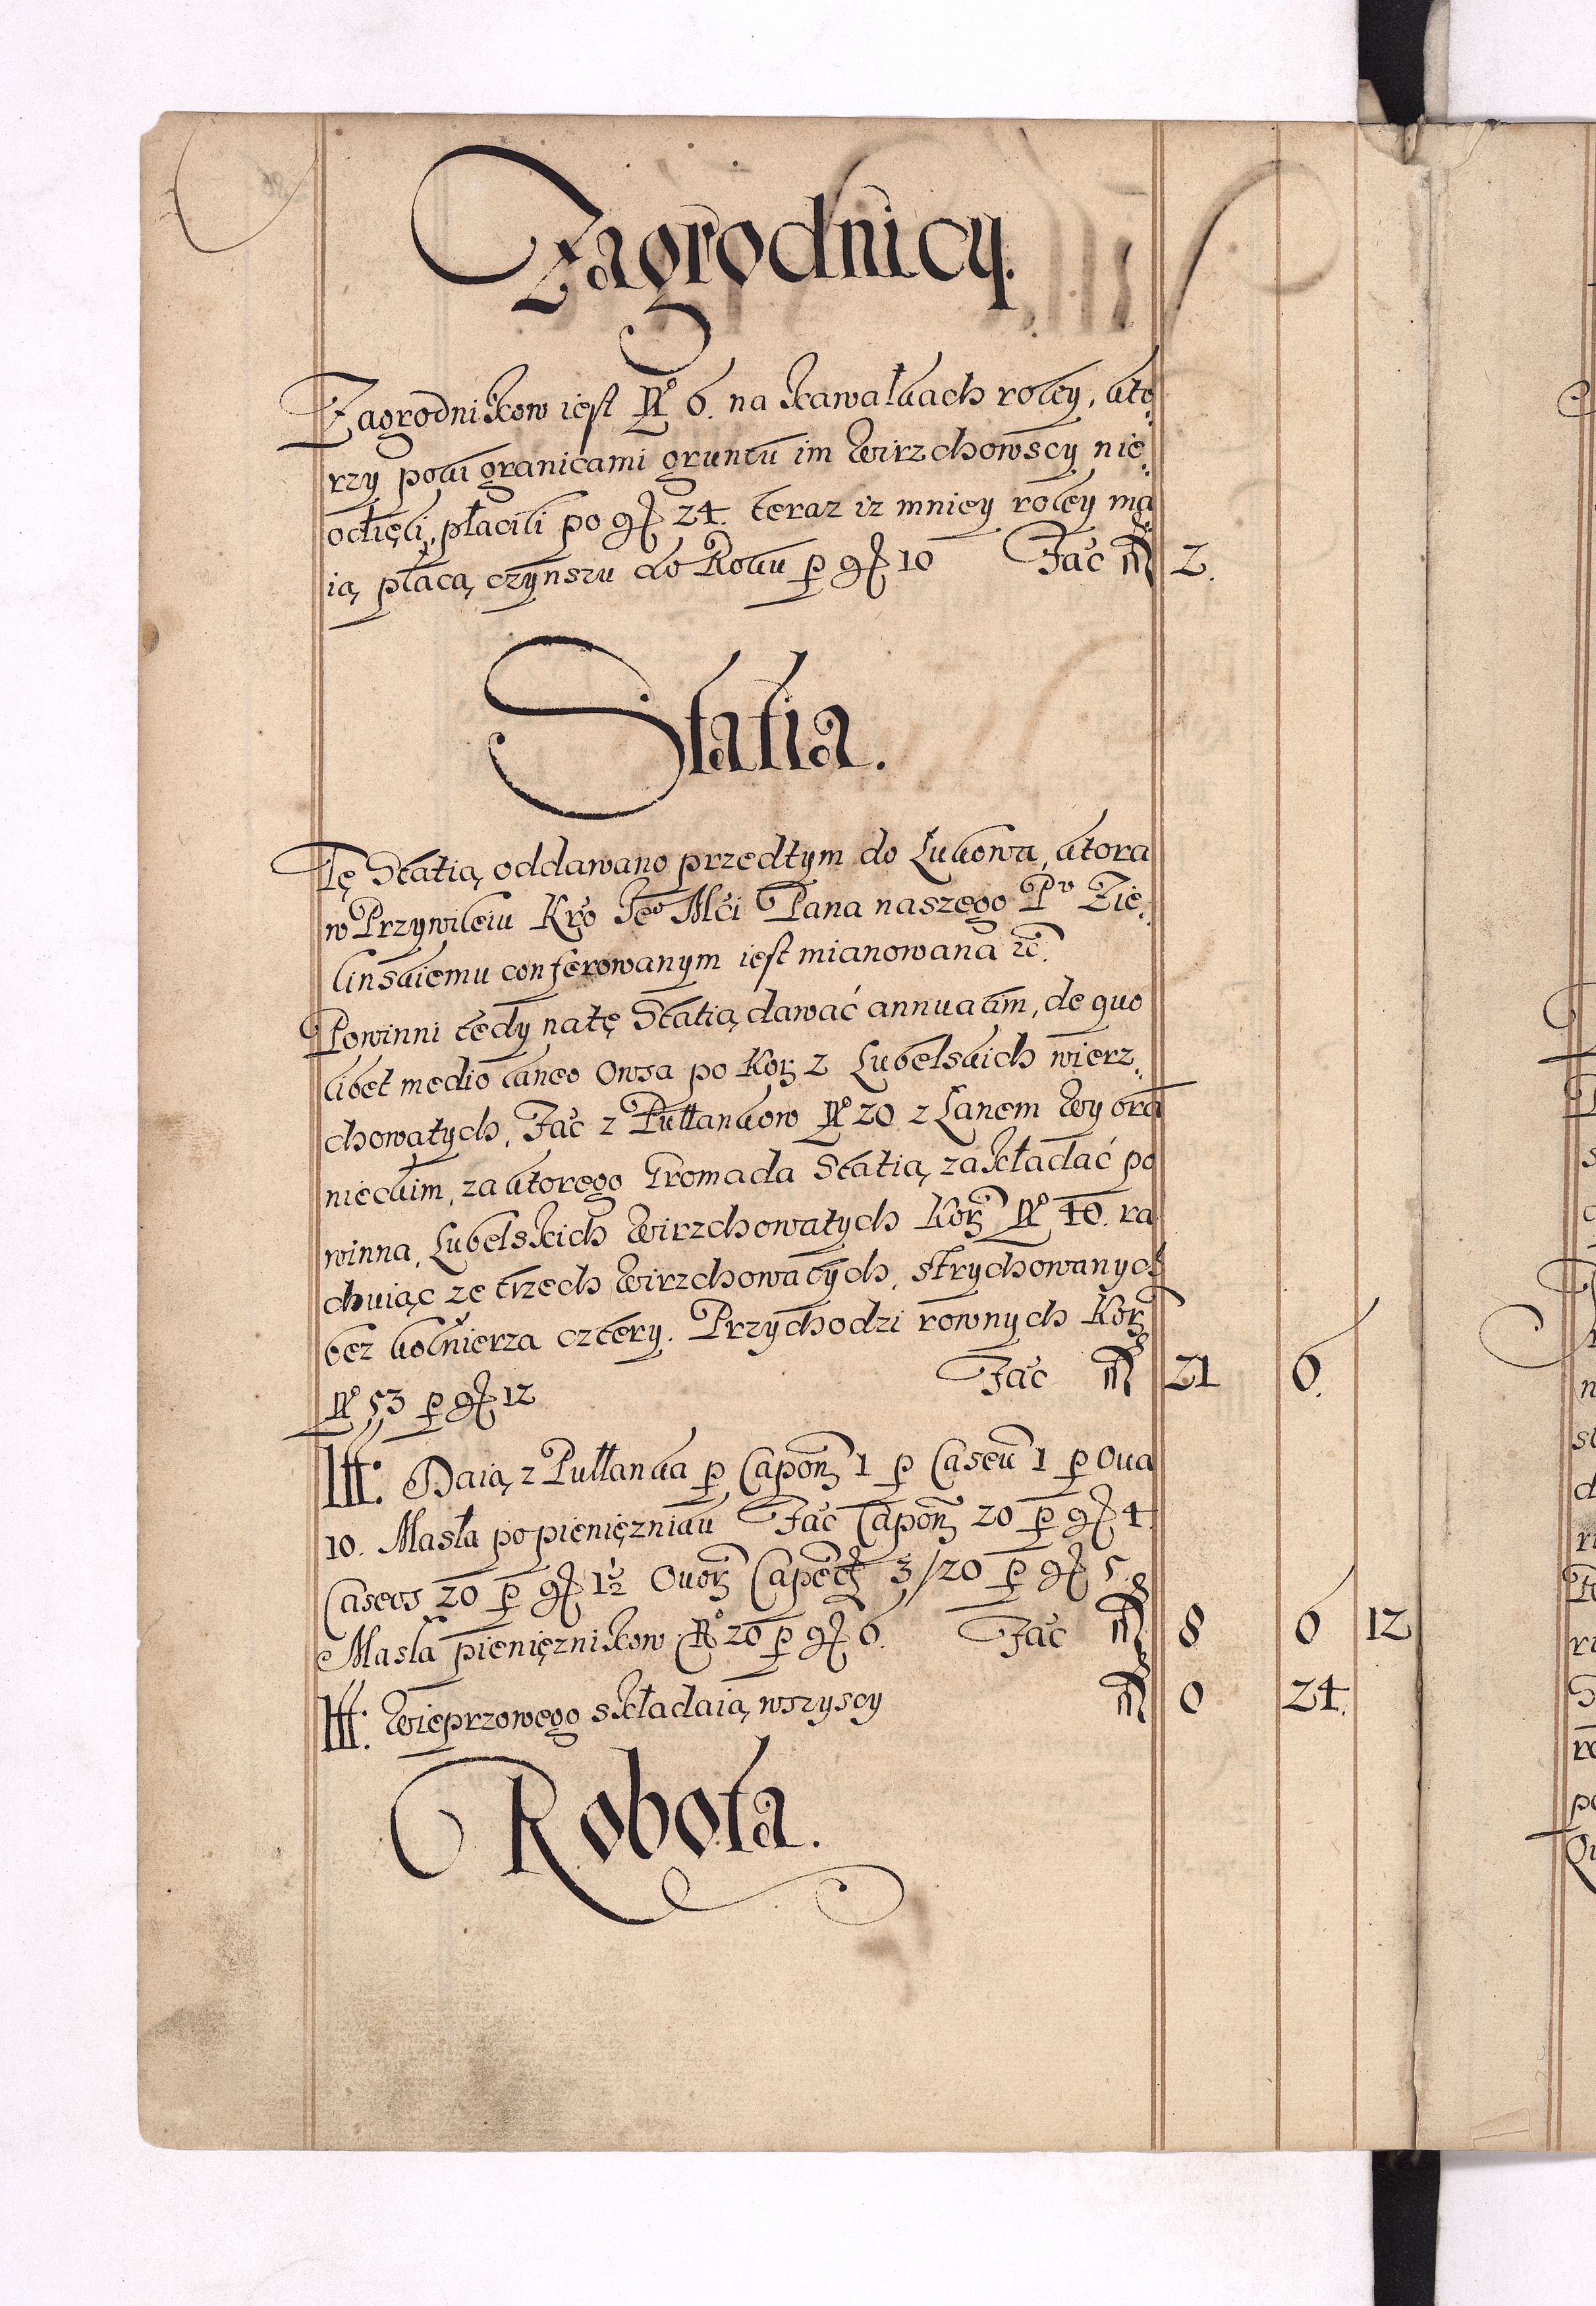 Zagrodnicy.
Zagrodnikow iest No 6. na kawałkach roley, kto
rzy poki granicami gruntu im Wirzchowscy nie
odięli, płacili po gr 24. teraz iz mniey roley ma
ią płacą czynszu do Roku p gr 10 Fac fl 2.
Statia.
Tę Statią oddawano przedtym do Lukowa, ktora
w Przywileiu Kro Jeo Mci Pana naszego Pu Zie
linskiemu conferowanym iest mianowana etc.
Powinni tedy natę Statią dawać annuatim, de quo
libet medio laneo Owsa po Kor 2 Lubelskich wierz
chowatych, Fac z Pułłankow No 20 z Łanem Wybra
nieckim, za ktorego Gromada Statią zakładać po
winna, Lubelskich Wirzchowatych Kor No 40. ra
chuiąc ze trzech Wirzchowatych, strychowanych
bez kołnierza cztery. Przychodzi rownych Kor
No 53 p gr 12 Fac fl 21 6.
Itt: Daią z Pułłanka p Capon 1 p Caseu 1 p Oua
10. Masła po pieniężniku Fac Capon 20 p gr 4
Caseos 20 p gr 1½ Ouor Capet 3/20 p gr 5
Masla pienięznikow No 20 p gr 6. Fac fl 8 6 12
Itt: Wieprzowego składaią wszyscy fl 0 24.
Robota.